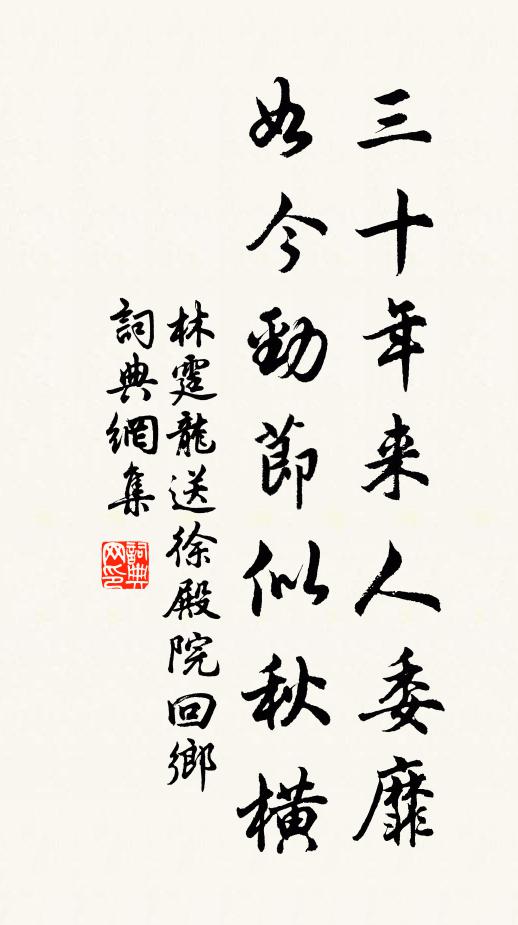 三十年来人委靡
如今勁節似秋橫
林霆龍送徐殿院回鄉
詞典網集
詞典网印